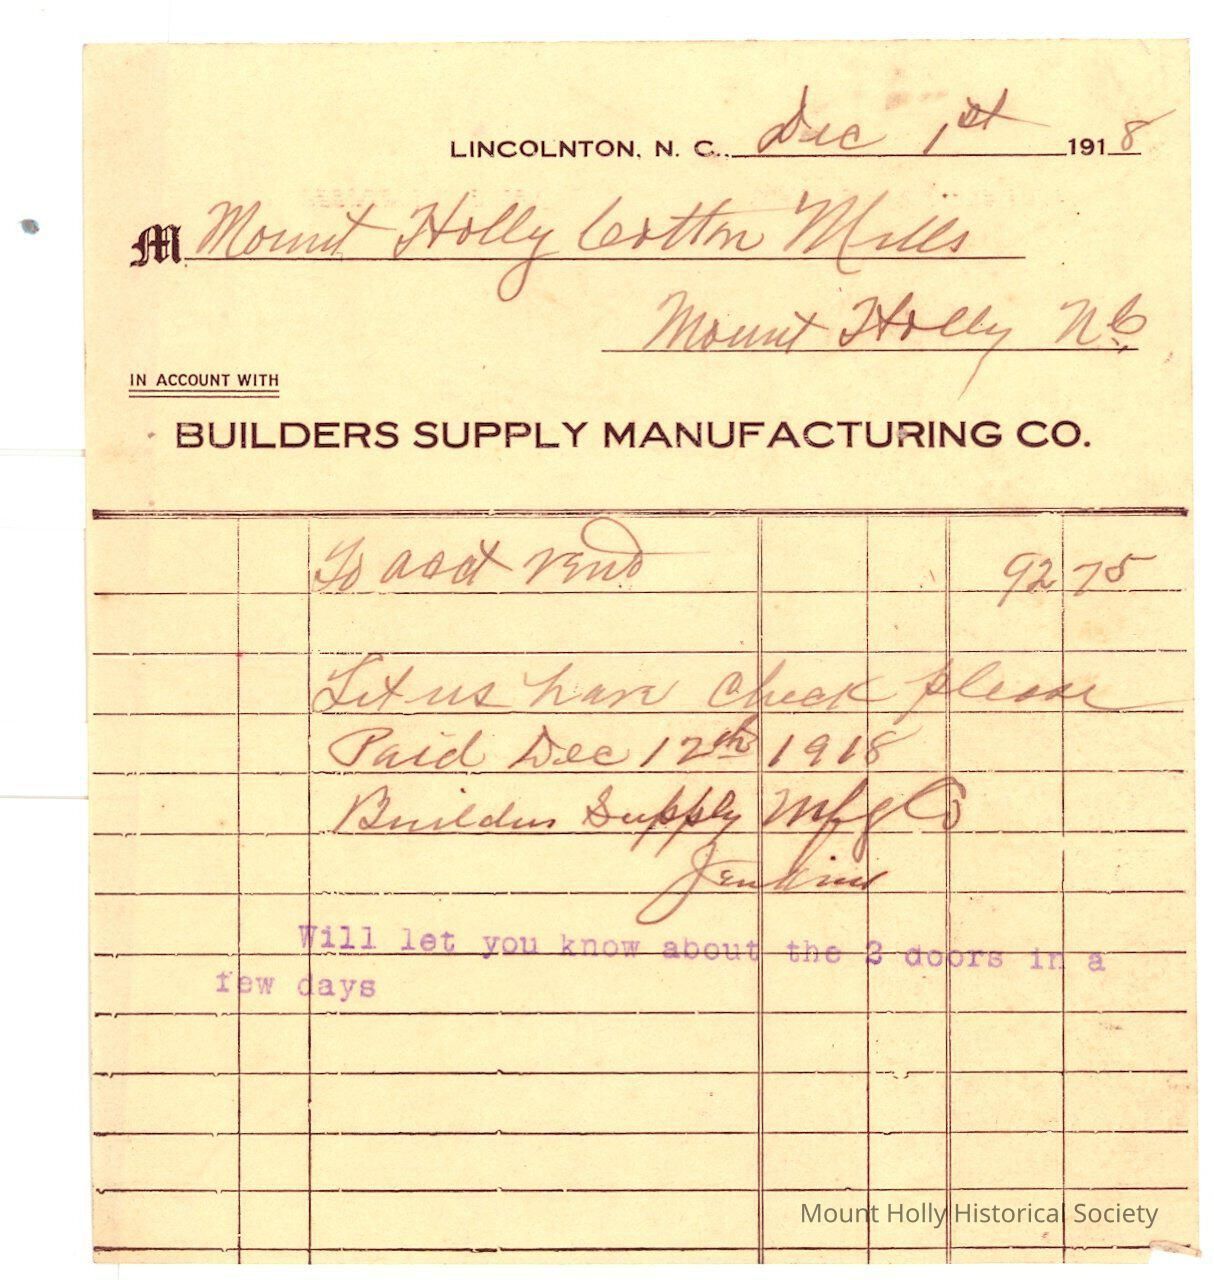 LINCOLNTON, N. C., Dec 1st 1918
M Mount Holly Cotton Mills
Mount Holly N.C.
IN ACCOUNT WITH
BUILDERS SUPPLY MANUFACTURING CO.
To acct rend 92 75
Let us have check please
Paid Dec 12th 1918
Builders Supply Mfg Co
Jenkins
Will let you know about the 2 doors in a
few days
Mount Holly Historical Society